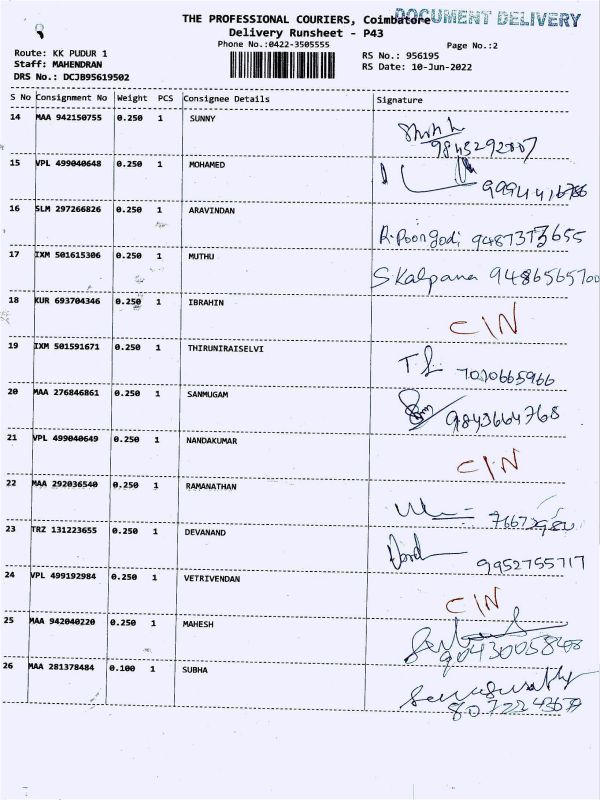 THE PROFESSIONAL COURIERS, Coimbatore
DOCUMENT DELIVERY
Delivery Runsheet - P43
Phone No.:0422-3505555
Page No.:2
Route: KK PUDUR 1
Staff: MAHENDRAN
DRS No.: DCJB95619502
RS No.: 956195
RS Date: 10-Jun-2022
S No Consignment No Weight PCS Consignee Details Signature
14 MAA 942150755 0.250 1 SUNNY
15 VPL 499040648 0.250 1 MOHAMED
16 SLM 297266826 0.250 1 ARAVINDAN
R.Poongodi
17 IXM 501615306 0.250 1 MUTHU
S Kalpana 9486565700
18 KUR 693704346 0.250 1 IBRAHIN
CIN
19 IXM 501591671 0.250 1 THIRUNIRAISELVI
20 MAA 276846861 0.250 1 SANMUGAM
9843664768
21 VPL 499040649 0.250 1 NANDAKUMAR
CIN
22 MAA 292036540 0.250 1 RAMANATHAN
23 TRZ 131223655 0.250 1 DEVANAND
9952755717
24 VPL 499192984 0.250 1 VETRIVENDAN
CIN
25 MAA 942040220 0.250 1 MAHESH
26 MAA 281378484 0.100 1 SUBHA